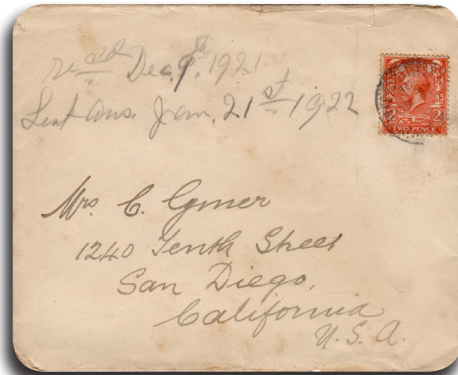 recd Dec. 9th. 1921
Sent ans. Jan. 21st 1922
2
TWO PENCE
Mrs C. Gmer
1240 Tenth Street
San Diego,
California
U. S. A.